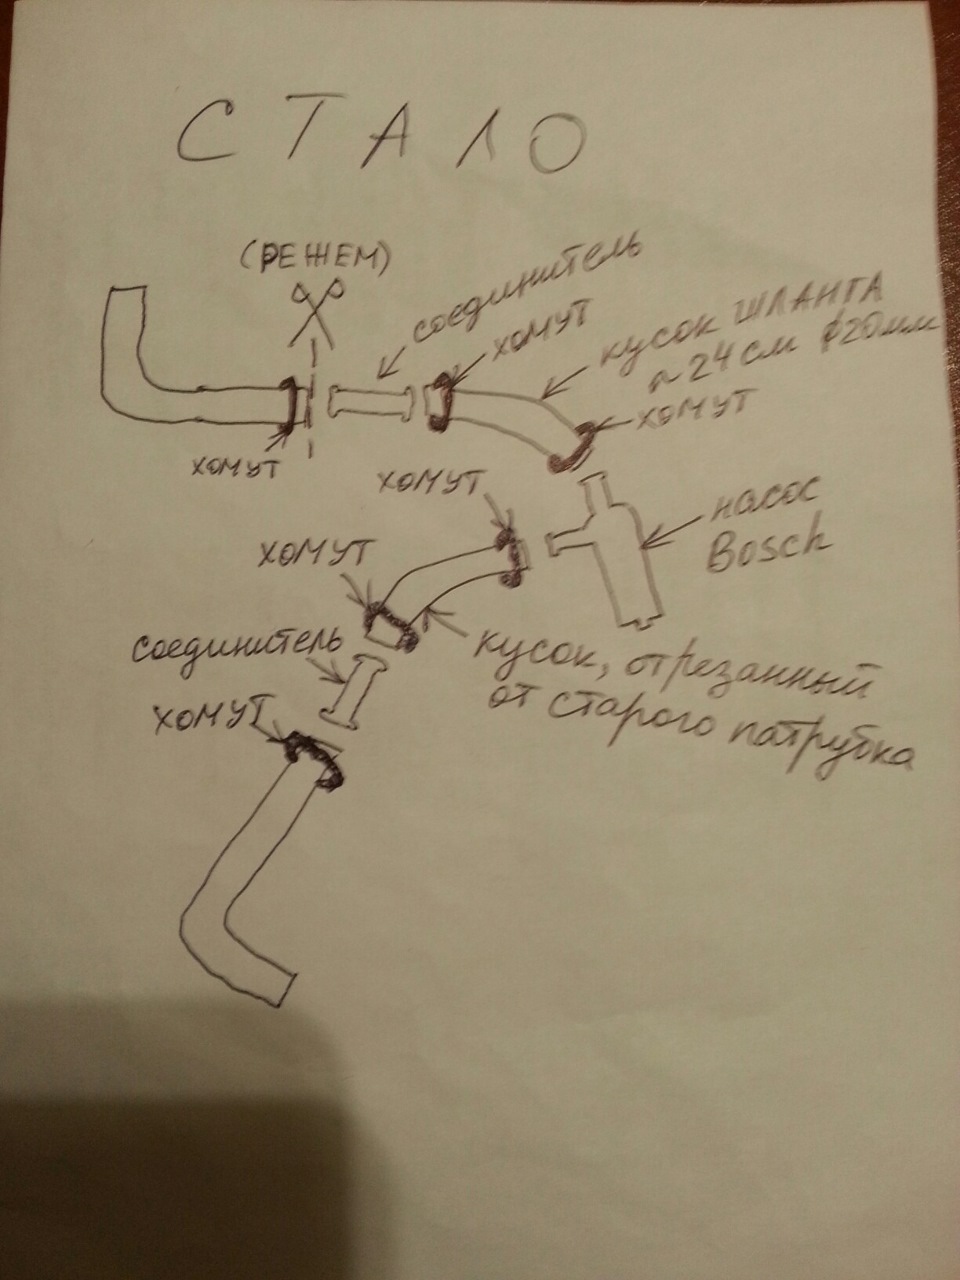 СТАЛО
(РЕЖЕМ)
соединитель
хомут
кусок шланга
~24см ф20мм
хомут
хомут
хомут
насос
Bosch
хомут
соединитель
кусок, отрезанный
от старого патрубка
хомут